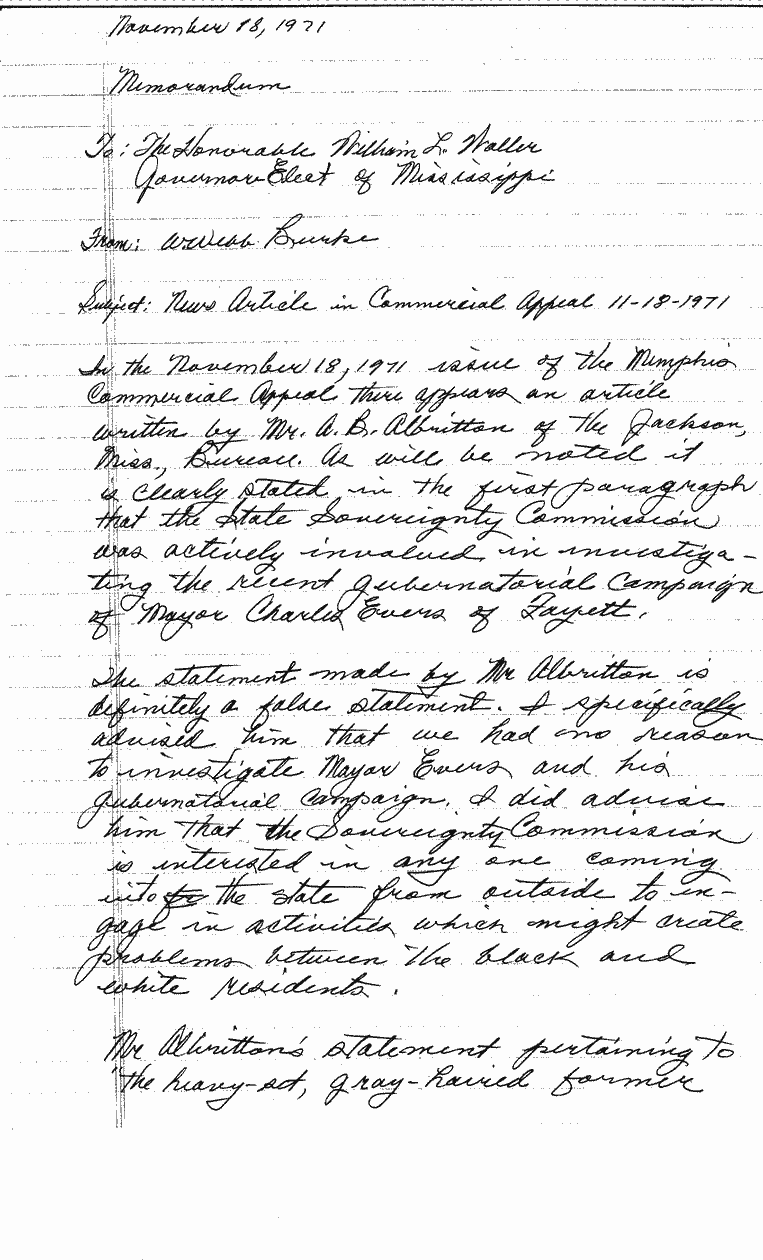 November 18, 1971
Memorandum
To: The Honorable William L. Waller
Governor Elect of Mississippi
From: W. Webb Burke
Subject: News Article in Commercial Appeal 11-18-1971
In the November 18, 1971 issue of the Memphis
Commercial Appeal there appears an article
written by Mr. A. B. Albritton of the Jackson,
Miss., Bureau. As will be noted it
is clearly stated in the first paragraph
that the State Sovereignty Commission
was actively involved in investiga-
ting the recent gubernatorial campaign
of Mayor Charles Evers of Fayett.
The statement made by Mr Albritton is
definitely a false statement. I specifically
advised him that we had no reason
to investigate Mayor Evers and his
gubernatorial campaign. I did advise
him that the Sovereignty Commission
is interested in any one coming
into the state from outside to en-
gage in activities which might create
problems between the black and
white residents.
Mr Albritton's statement pertaining to
"the heavy-set, gray-haired former